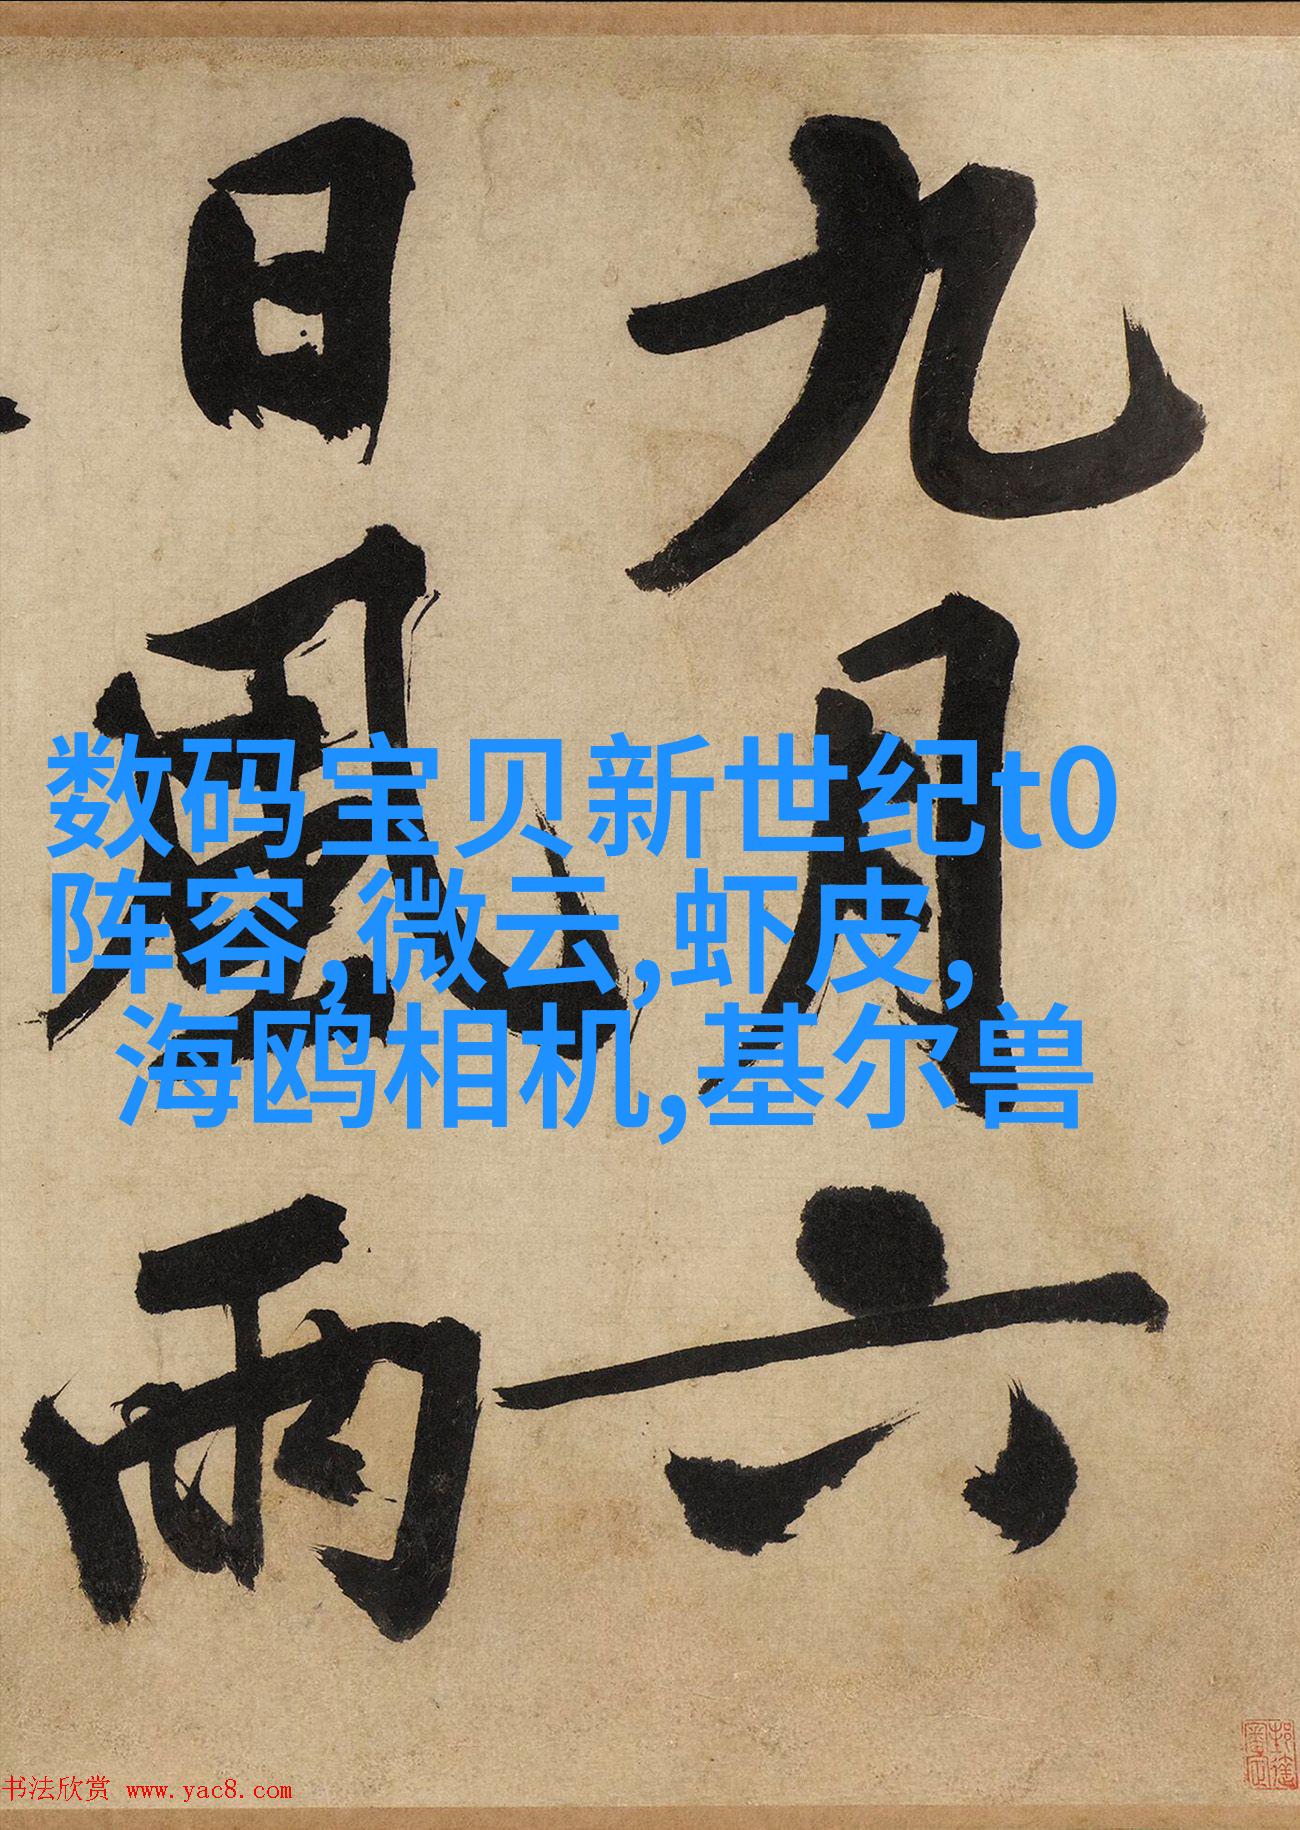 九月六
日風雨
数码宝贝新世纪t0
阵容,微云,虾皮,
海鸥相机,基尔兽
书法欣赏 www.yac8.com